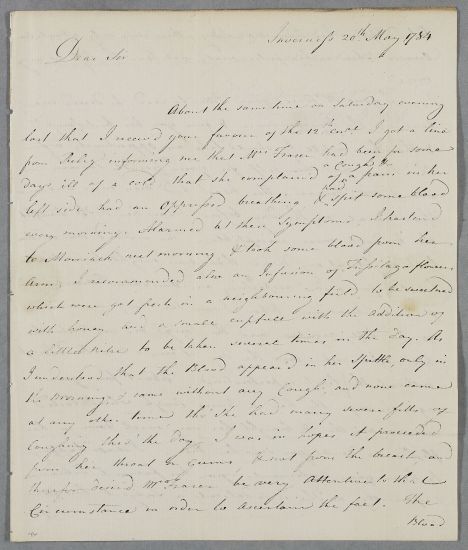 Inverness 20th May 1784
Dear Sir
About the same time on Saturday evening
last that I received your favour of the 12th Curt I got a line
from informing me that Mrs Fraser had been for some
days ill of a cold that she complained of a Cough & a pain in her
left side, had an oppressed breathing & had spit some blood
every morning. Alarmed at these Symptoms I hastened
to Moniack next morning & took some blood from her
Arm, I recommended also an Infusion of Tussilago flowers
which were got fresh in a neighbouring field to be sweetned
with honey and a small cupfull with the addition of
a little to be taken several times in the day. As
I understood that the Blood appeared in her Spittle, only in
the Morning, & came without any Cough, and none came
at any other time tho' she had many severe fits of
Coughing thro' the day, I was in hopes it proceeded
from her throat or Gums, & not from the breast, and
therefore desired Mrs Fraser be very Attentive to that
Circumstance in order to ascertain the fact. The
Blood